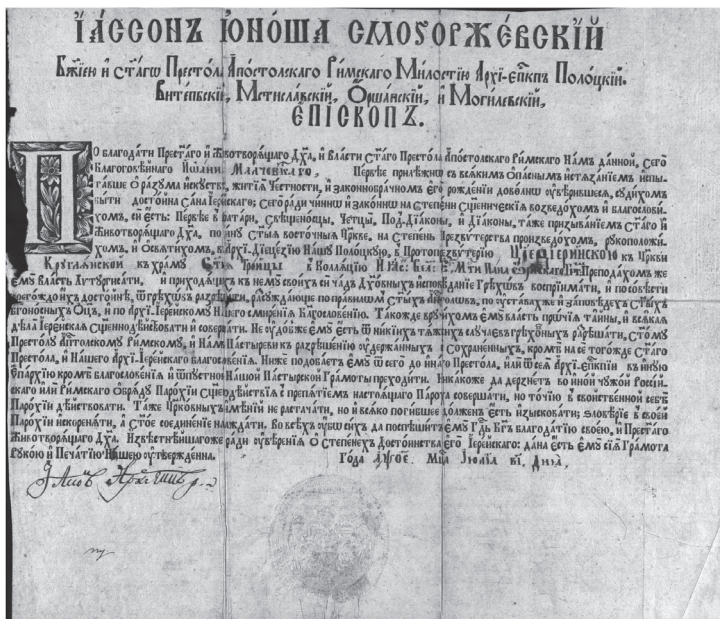 ІАССОНЪ ЮНОША СМОГОРЖЕВСКІЙ
Бж҃іею и Ст҃агѡ Престола Апостолскаго Римскаго Милостію Архі-Епкпъ Полоцкій.
Витепскій, Мстиславскій, Оршанскій, и Могилевскій,
ЕПІСКОПЪ.
ПО благодати Прест҃аго и Животворящаго Дх҃а, и Власти Ст҃аго Престола Апостолскаго Римскаго Намъ данной, сего
Благоговѣйнаго Перѵѣе прилѣжнѡ съ всякимъ опаснымъ истязаніемъ испы-
тавше О разума искуствѣ, житія честности, и законнобрачномъ его рожденіи доволнѡ оувѣрившеся, судихомъ
быти достойна Сана Іерейскаго; Сего ради чиннѡ и законнѡ на степени Сщенническія возведохомъ и благослови-
хомъ, си есть: Первѣе вратари, свѣщеносцы, четцы, Под-Діаконы, и Діаконы, таже призываніемъ Ст҃аго и
Животворящаго Дх҃а, по чину Ст҃ыя восточныя Цркве, на степень Презвутерства произведохомъ, рукоположи-
хомъ, и Освятихомъ, в Архі-Діецезію Нашу Полоцкую, в Протопрезвутерію къ Црквѣ
Круглянской къ храму Ст҃ыя Тройцы в Коллацію Преподахомъ же
ему власть Литургисати, и приходящихъ къ нему своихъ си чадъ Дховныхъ исповѣданіе Грѣховъ воспріимати, и повѣсти
Бг҃оносныхъ Оц҃ъ, и по Архі-Іерейскому Нашего смиренія благословенію. Такожде вручихомъ ему власть прочія тайны, и всякая
дѣла Іерейская Сщеннодѣйствовати и совершати. Не оудобже ему есть ѿ нѣкихъ тяжкихъ случаевъ грѣховныхъ разрѣшати, Ст҃ому
Престолу Апт҃олскому Римскому, и Намъ Пастыреви къ разрѣшенію оудержанныхъ и Сохраненныхъ, кромѣ на сё тогожде Ст҃аго
Престола, и Нашего Архі-Іерейскаго благословенія. Ниже подобаетъ ему ѿ сего до инаго Престола, или ѿ сея Архі-Епкпіи въ иную
Епархію кромѣ благословенія и ѿпустной Нашой Пастырской Грамоты преходити. Никакоже да дерзнетъ во иной чужой Россій-
скаго или Римскаго Обряду Парохіи Сщеннодѣйствія с препятіемъ настоящаго Пароха совершати, но точію в свойственной себѣ
Парохіи дѣйствовати. Таже Црковныхъ имѣній не растачати, но и всяко погибшее долженъ есть изысковати; зловѣріе в своей
Парохіи искореняти, а Ст҃ое соединеніе наждати. Во всѣхъ оубѡ сихъ да поспѣшитъ ему Гд҃ь Бг҃ъ благодатію своею, и Прест҃аго
Животворящаго Дх҃а. Извѣстнѣйшаго же ради оувѣренія О степенехъ Достоинства его Іерейскаго; дана есть ему сія Грамота
Рукою и Печатію Нашею оутвержденна. Года Мц҃а Іюлія Дня,